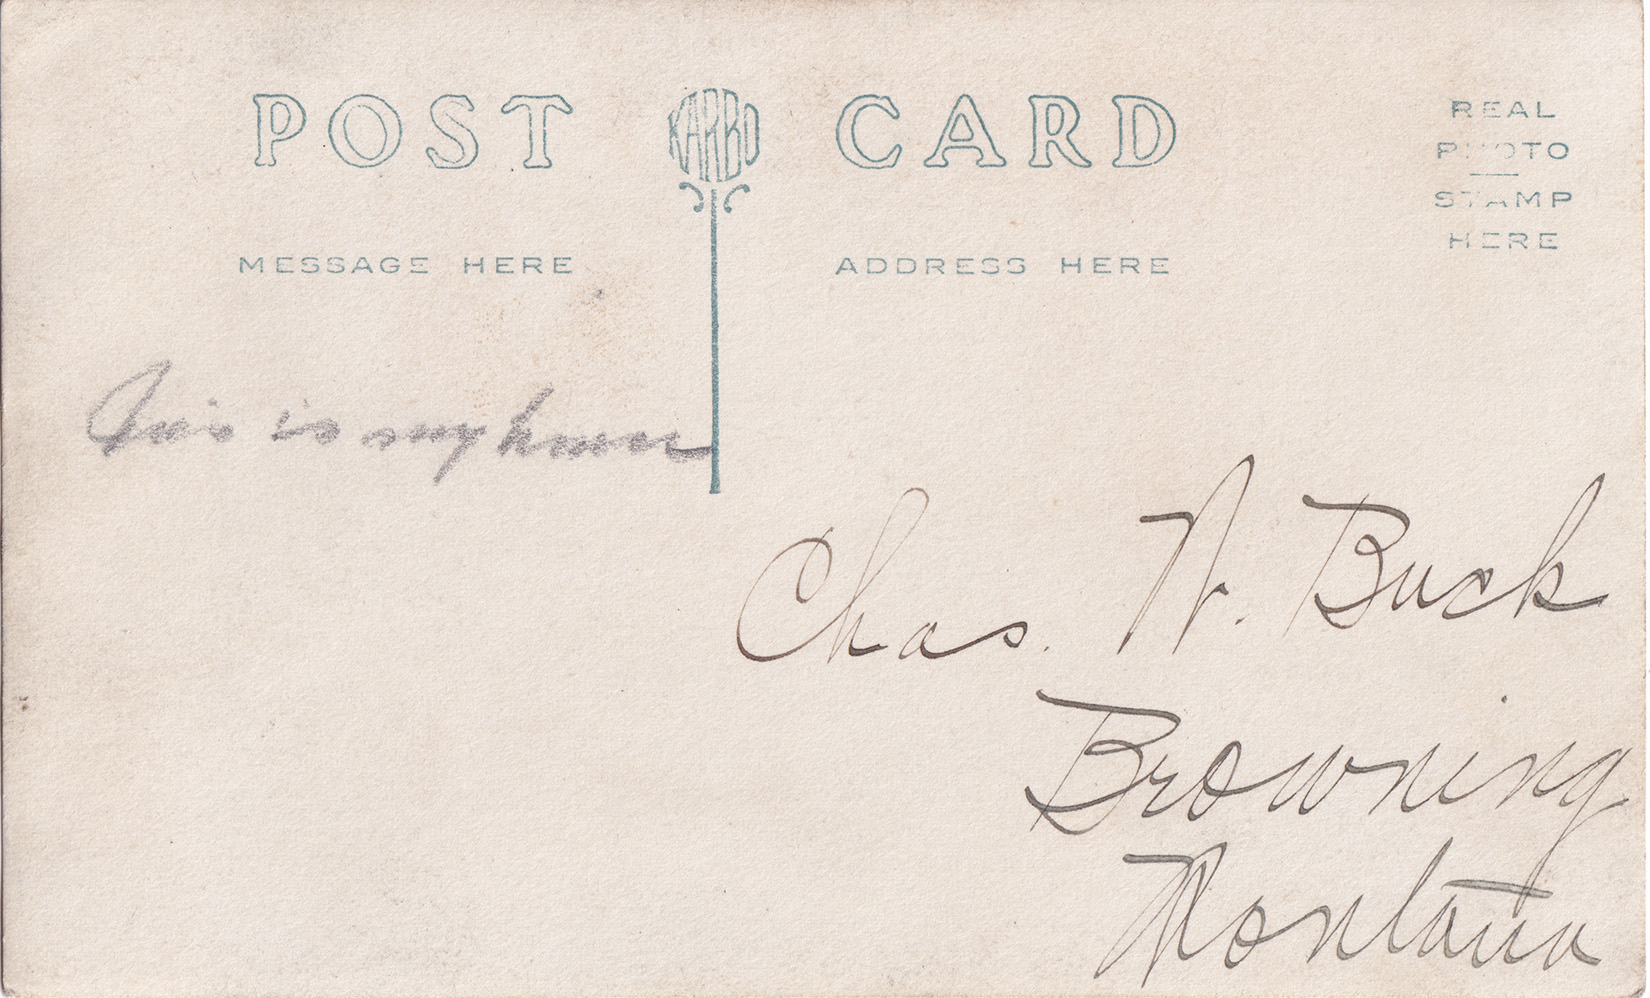 POST KARBO CARD
REAL
PHOTO
STAMP
HERE
MESSAGE HERE
ADDRESS HERE
This is my home
Chas. N. Buck
Browning
Montana